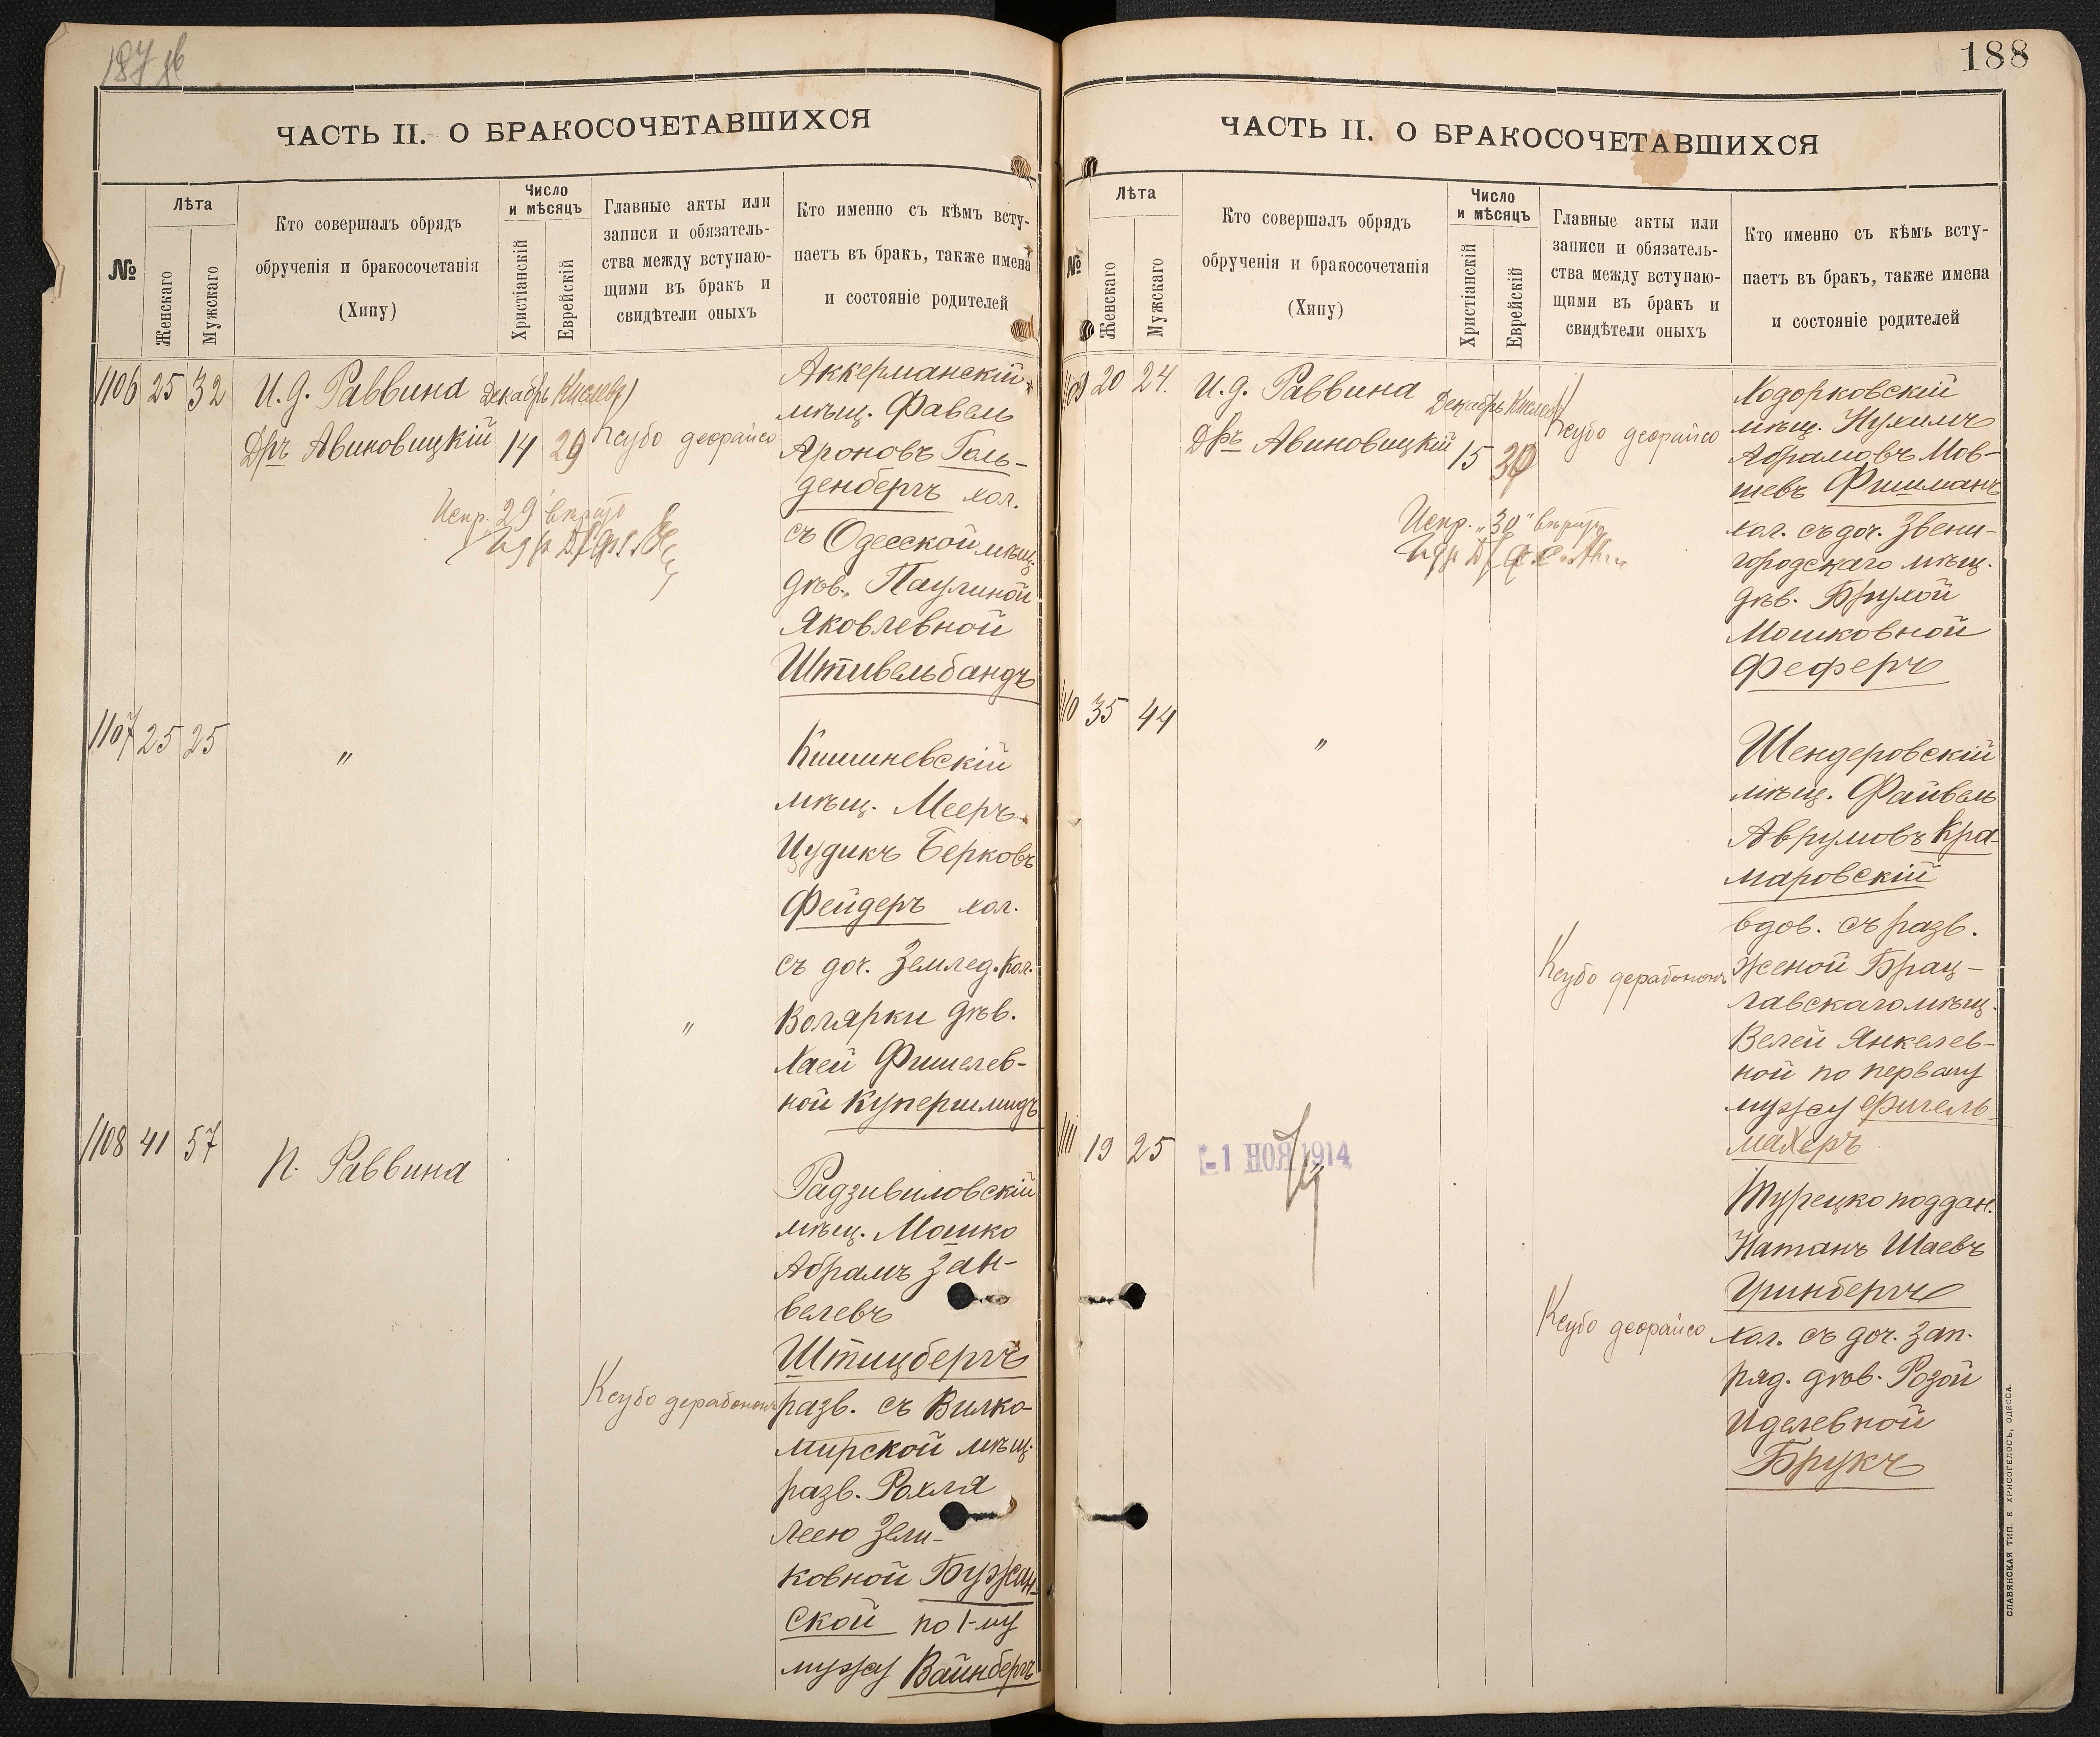 187 об
ЧАСТЬ II. О БРАКОСОЧЕТАВШИХСЯ
№
Лѣта
Женскаго
Мужскаго
Кто совершалъ обрядъ
обрученія и бракосочетанія
(Хипу)
Число
и мѣсяцъ
Христіанскій
Еврейскій
Главные акты или
записи и обязатель-
ства между вступаю-
щими въ бракъ и
свидѣтели оныхъ
Кто именно съ кѣмъ всту-
паетъ въ бракъ, также имена
и состояніе родителей
1106 25 32
И. д. Раввина
Дръ Авиновицкій
Декабрь Кислевъ
14 29
Ксубо деорайсо
Испр. 29 вѣрно
Аккерманскій
мѣщ. Фавель
Ароновъ Голь-
денбергъ хол.
съ Одесской мѣщ.
дѣв. Паулиной
Яковлевной
Штивельбандъ
1107 25 25
"
"
Кишиневскій
мѣщ. Мееръ
Цудикъ Берковъ
Фейдеръ хол.
съ доч. Землед. Кол.
Волярки дѣв.
Хаей Фишелев-
ной Купершмидъ
1108 41 57
П. Раввина
Ксубо дерабонон
Радзивиловскій
мѣщ. Мошко
Абрамъ Зан-
велевъ
Штицбергъ
разв. съ Вилко-
мирской мѣщ.
разв. Рохля
Леею Зели-
ковной Бужан-
ской по 1-му
мужу Вайнбергъ
188
ЧАСТЬ II. О БРАКОСОЧЕТАВШИХСЯ
№
Лѣта
Женскаго
Мужскаго
Кто совершалъ обрядъ
обрученія и бракосочетанія
(Хипу)
Число
и мѣсяцъ
Христіанскій
Еврейскій
Главные акты или
записи и обязатель-
ства между вступаю-
щими въ бракъ и
свидѣтели оныхъ
Кто именно съ кѣмъ всту-
паетъ въ бракъ, также имена
и состояніе родителей
1109 20 24
И. д. Раввина
Дръ Авиновицкій
Декабрь Кислевъ
15 30
Ксубо деорайсо
Испр. "30" вѣрно
Ходорковскій
мѣщ. Нухимъ
Абрамовъ Мов-
шевъ Фишманъ
хол. съ доч. Звени-
городскаго мѣщ.
дѣв. Брухой
Мошковной
Феферъ
1110 35 44
"
Ксубо дерабонон
Шендеровскій
мѣщ. Файвель
Аврумовъ Кра-
маровскій
вдов. съ разв.
женой Брац-
лавскаго мѣщ.
Велей Янкелев-
ной по первому
мужу Фигель-
махеръ
1111 19 25
-1 НОЯ 1914
Ксубо деорайсо
Турецко поддан.
Натанъ Шаевъ
Гринбергъ
хол. съ доч. зап.
ряд. дѣв. Розой
Иделевной
Брукъ
СЛАВЯНСКАЯ ТИП. Е. ХРИСОГЕЛОСЪ, ОДЕССА.